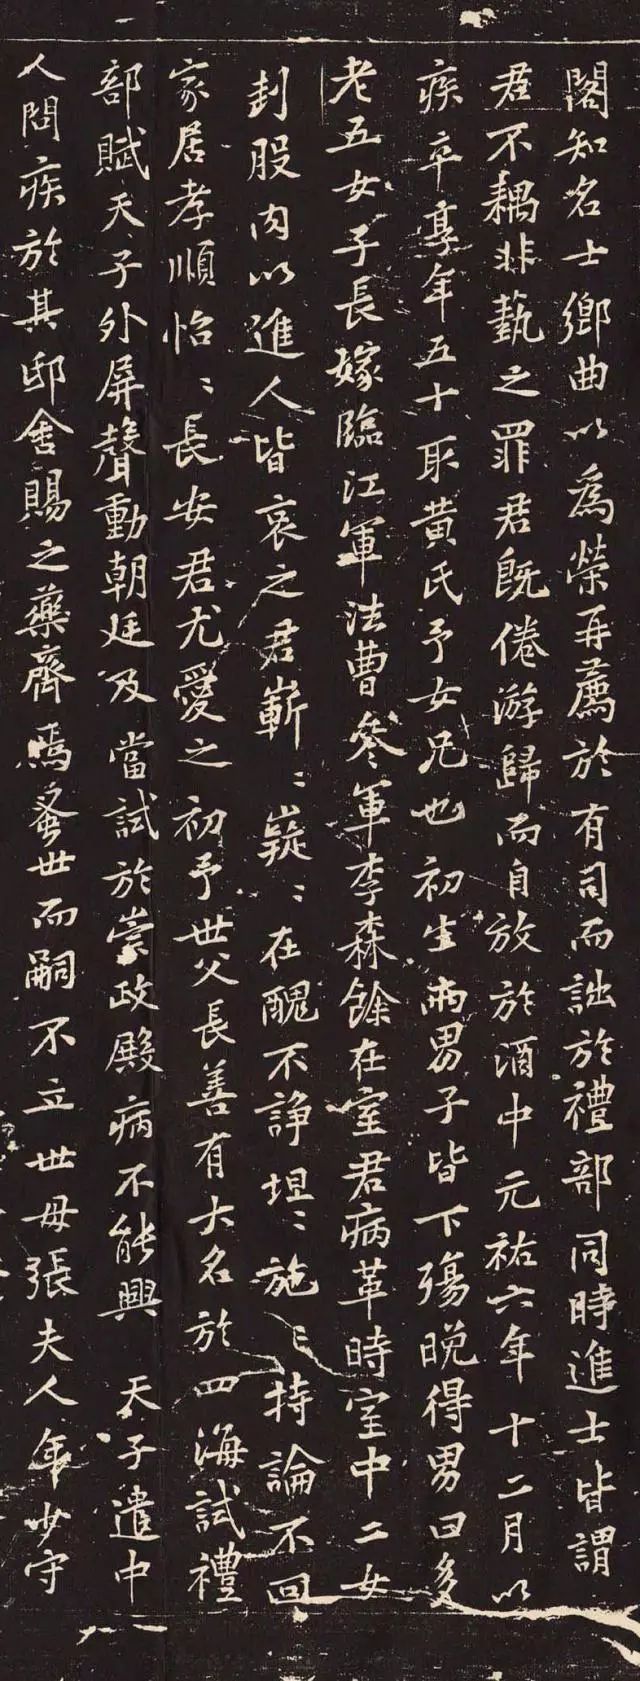 閣知名士鄉曲以爲榮再薦於有司而詘於禮部同時進士皆謂
君不耦非藝之罪君旣倦游歸而自放於酒中元祐六年十二月以
疾卒享年五十取黃氏予女兄也初生兩男子皆下殤晚得男曰多
老五女子長嫁臨江軍法曹叅軍李森餘在室君病革時室中二女
刲股肉以進人皆哀之君嶄〻嶷〻在醜不諍坦〻施〻持論不回
家居孝順怡〻長安君尤愛之初予世父長善有大名於四海試禮
部賦天子外屏聲動朝廷及當試於崇政殿病不能興 天子遣中
人問疾於其邸舍賜之藥齊焉蚤世而嗣不立世母張夫人年少守